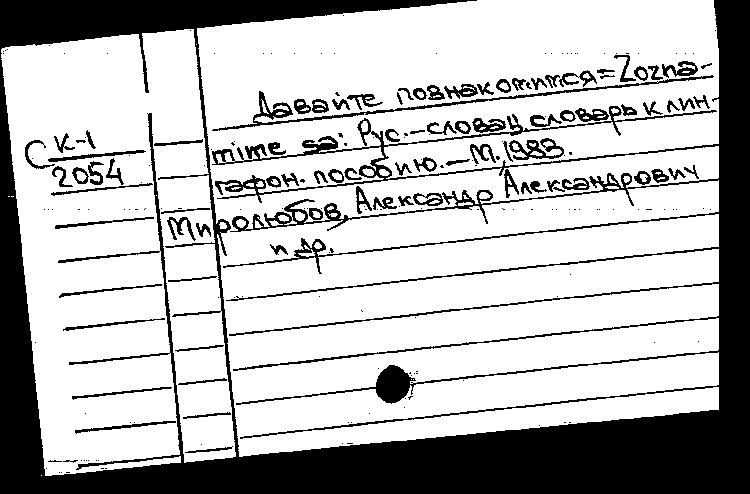 Давайте познакомимся = Zozna-
С К-1
2054
mime sa: Рус.-словац. словарь к лин-
гафон. пособию. - М., 1983.
Миролюбов, Александр Александрович
и др.